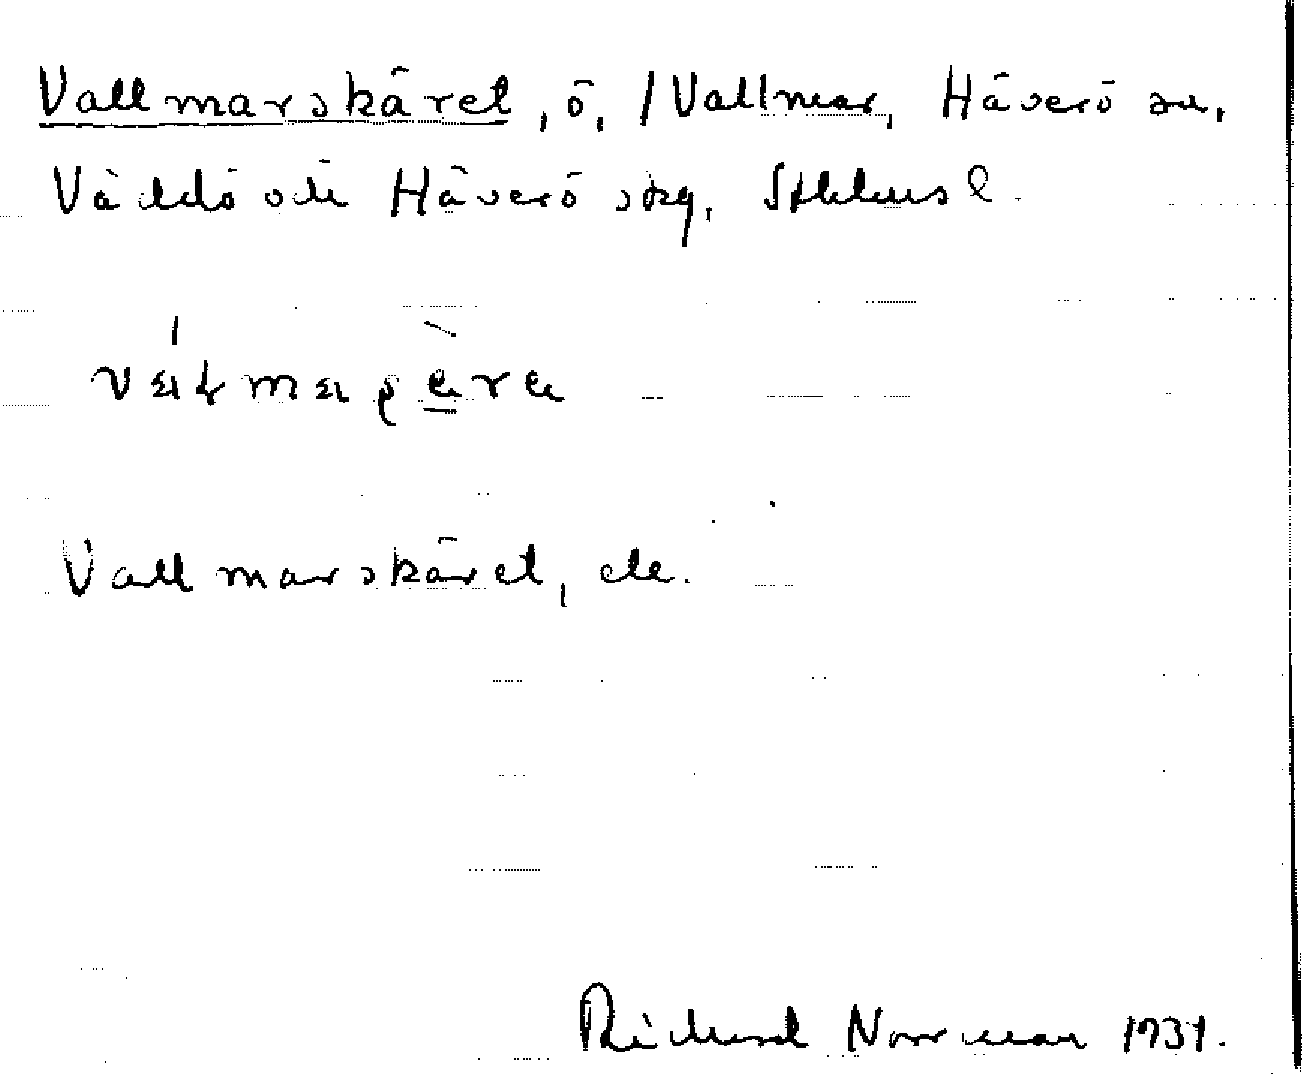 Vallmarskäret, ö, /Vallmar, Häverö sn,
Väddö och Häverö skg, Sthlms l.
Vallmarskäret, ele.
Richard Norrman 1931.